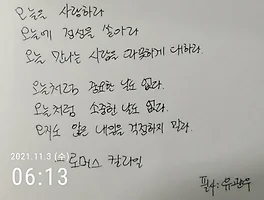 오늘을 사랑하라
오늘에 정성을 쏟아라
오늘 만나는 사람을 따뜻하게 대하라.
오늘처럼 중요한 날도 없다.
오늘처럼 소중한 날도 없다.
오지도 않은 내일을 걱정하지 말라.
토머스 칼라일
2021.11.3 (수)
06:13
필사:유관우